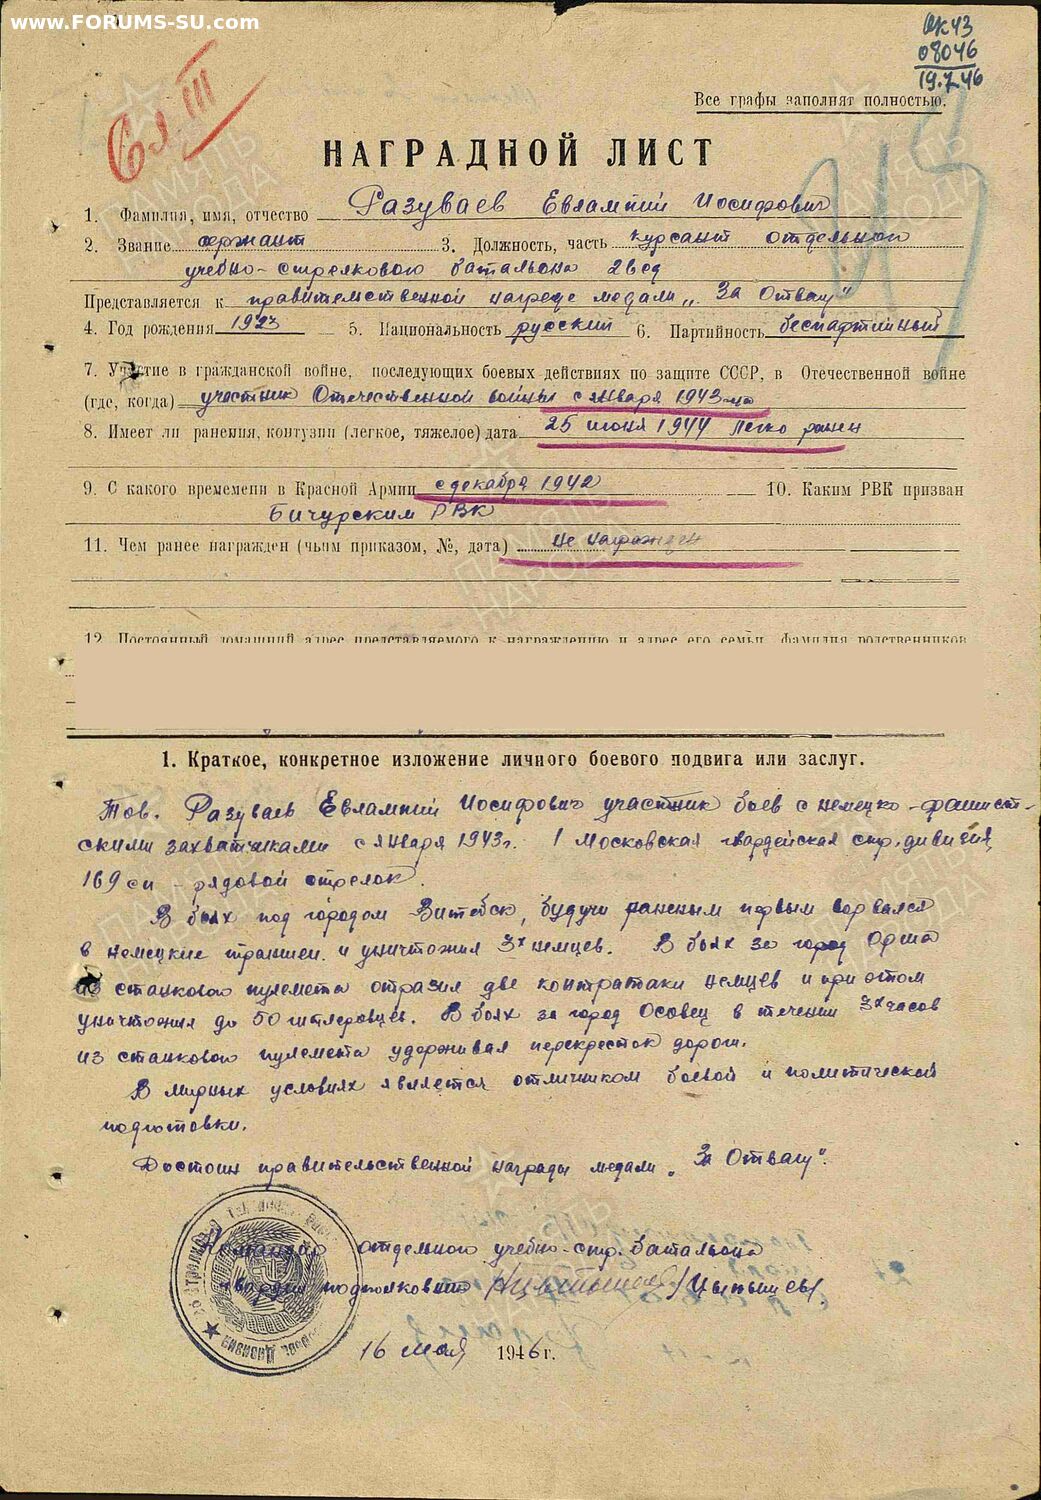 www.FORUMS-SU.com
08046
19.7.46
Сл III
Все графы заполнят полностью.
НАГРАДНОЙ ЛИСТ
1. Фамилия, имя, отчество Разуваев Евлампий Иосифович
2. Звание сержант 3. Должность, часть курсант отдельного
учебно-стрелкового батальона
Представляется к правительственной награде медали „За Отвагу"
4. Год рождения 1923 5. Национальность русский 6. Партийность беспартийный
7. Участие в гражданской войне, последующих боевых действиях по защите СССР, в Отечественной войне
(где, когда) участник Отечественной войны с января 1943 го
8. Имеет ли ранения, контузии (легкое, тяжелое) дата 25 июня 1944 легко ранен
9. С какого времемени в Красной Армии с декабря 1942 10. Каким РВК призван
Бичурским РВК
11. Чем ранее награжден (чьим приказом, №, дата) не награжден
12. Постоянный домашний адрес представляемого к награждению и адрес его семьи. Фамилия родственников
1. Краткое, конкретное изложение личного боевого подвига или заслуг.
Тов. Разуваев Евлампий Иосифович участник боев с немецко-фашист-
скими захватчиками с января 1943г. 1 Московская гвардейская стр. дивизия,
169 сп - рядовой стрелок.
В боях под городом Витебск, будучи раненым первым ворвался
в немецкие траншеи и уничтожил 3х немцев. В боях за город Орша
из станкового пулемета отразил две контратаки немцев и при этом
уничтожил до 50 гитлеровцев. В боях за город Осовец в течении 3х часов
из станкового пулемета удерживал перекресток дорог.
В мирных условиях является отличником боевой и политической
подготовки.
Достоин правительственной награды медали „За Отвагу".
Командир отдельного учебно-стр. батальона
гвардии подполковник /Цыпышев/.
16 мая 1946 г.
ПАМЯТЬ НАРОДА